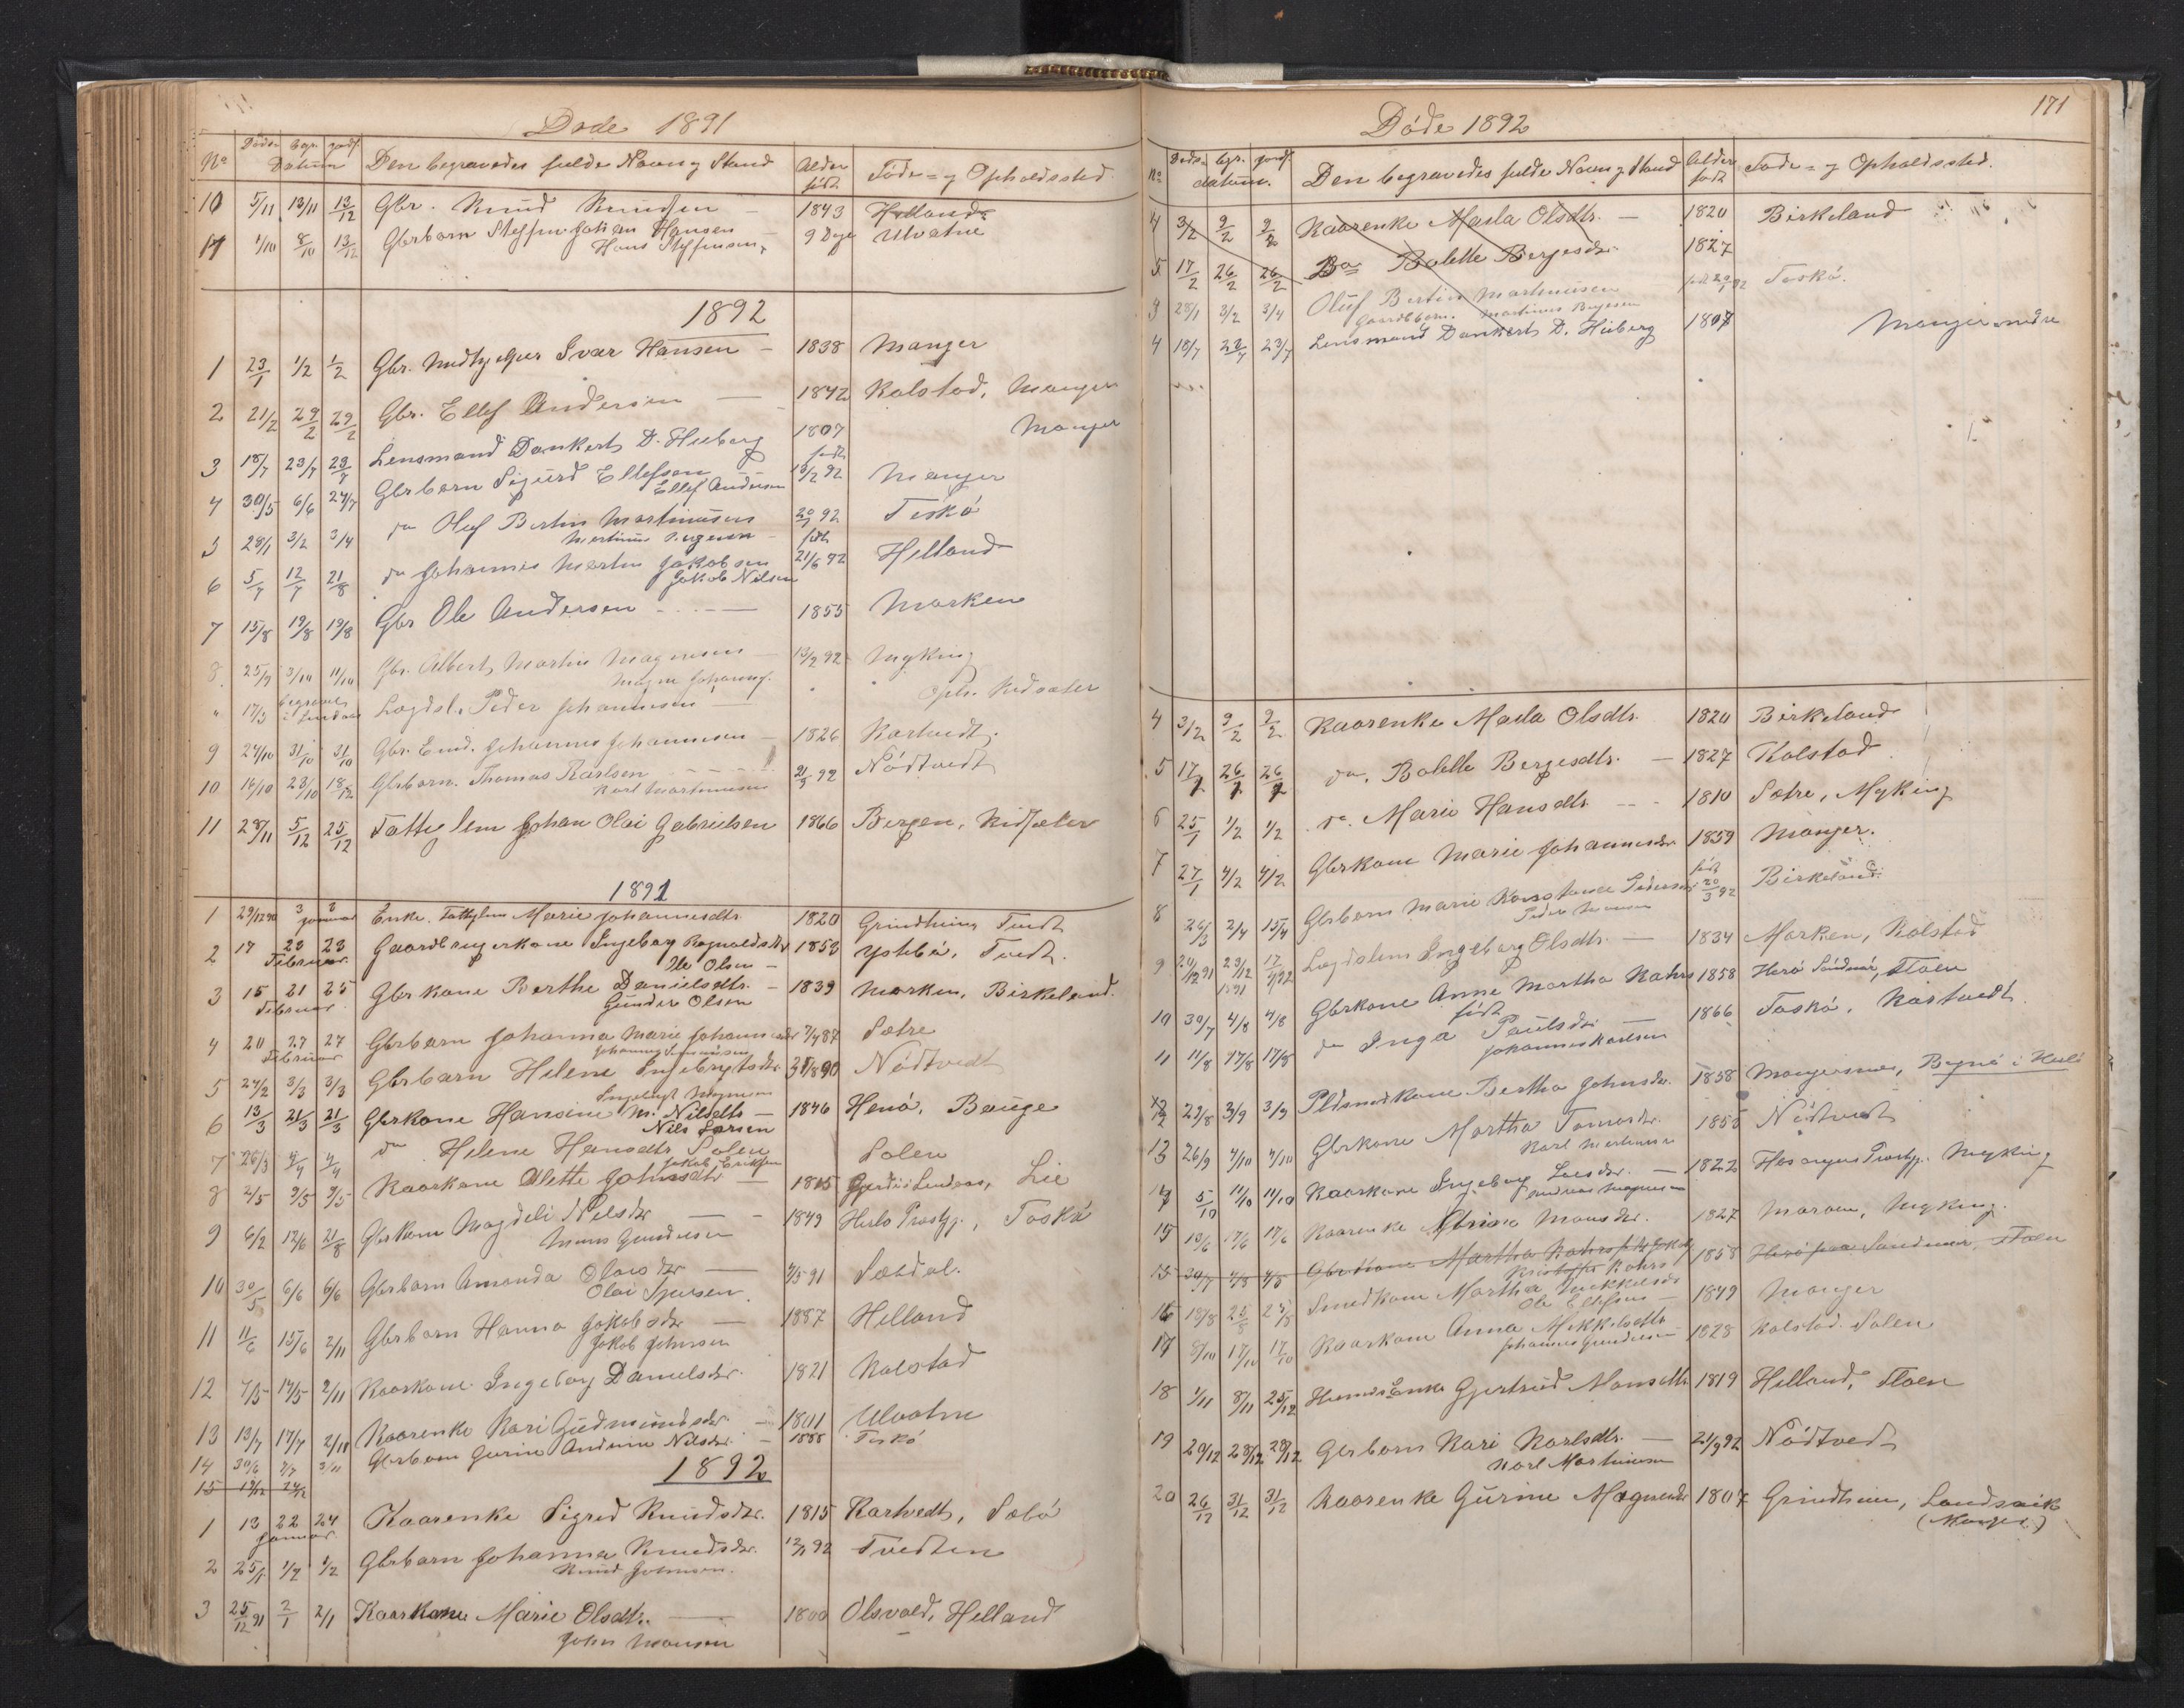 Døde 1891
No Døds- begr. jordf. Datum Den begravedes fulde Navn og Stand Alder født Føde- og Opholdssted
10 5/11 13/11 13/12 Gbr. Knud Knudsen 1843 Helland
11 1/10 8/10 13/12 Gbrbarn Steffen Johan Hansen 9 Dage Ulvatne
Hans Steffensen
1892
1 23/1 1/2 1/2 Gbr. Medhjelper Ivar Hansen 1838 Manger
2 21/2 29/2 29/2 Gbr. Ellef Andersen 1842 Kolstad, Manger
3 18/7 23/7 23/7 Lensmand Dankert D. Heiberg 1807 Manger
4 30/5 6/6 24/7 Gbrbarn Sigurd Ellefsen født 13/2 92 Manger
Ellef Andersen
5 28/1 3/2 3/4 do Oluf Bertin Martinusen 20/1 92 Toskø
6 5/7 12/7 21/8 do Johannes Martin Jakobsen født 21/6 92 Helland
Jakob Nilsen
7 15/8 19/8 19/8 Gbr Ole Andersen 1855 Marken
8 25/9 3/10 11/10 Gbr. Albert Martin Magnusen 13/2 92 Myking
" 17/3 begravet i Lindaas Lægdsl. Peder Johannesen Oph. Kidsæter
9 24/10 31/10 31/10 Gbr. Enkd. Johannes Johannesen 1826 Kartvedt
10 16/10 23/10 18/12 Gbrbarn. Thomas Karlsen 21/9 92 Nødtvedt
Karl Martinusen
11 28/11 5/12 25/12 Fattiglem Johan Olai Gabrielsen 1866 Bergen, Kidsæter
1891
1 29/12 90 3 3 Januar Enke. Fattiglem Marie Johannesdtr 1820 Grindheim Tvedt
2 17 23 23 Februar Gaardbrugerkone Ingeborg Ragnvaldsdtr 1853 Ystebø, Tvedt.
Ole Olsen
3 15 21 25 Februar Gbrkone Berthe Danielsdtr. 1839 Marken, Birkeland.
Gunder Olsen
4 20 27 27 Februar Gbrbarn Johanna Marie Johannesdtr 7/4 87 Sætre
5 24/2 3/3 3/3 Gbrbarn Helene Ingebrigtsdtr 31/8 90 Nødtvedt
Ingebrigt Mogensen
6 13/3 21/3 21/3 Gbrkone Hansine M. Nilsdtr 1846 Henø, Bauge
Nils Larsen
7 26/3 4/4 4/4 do Helene Hansdtr Solen Solen
Jakob Eriksen
8 2/5 9/5 9/5 Kaarkone Olette Johnsdtr 1815 Lindaas, Lie
9 6/2 12/6 21/8 Gbrkone Magdeli Nilsdtr 1849 Herlø Prestgj., Toskø
Mons Gundersen
10 30/5 6/6 6/6 Gbrbarn Amanda Olaisdtr 4/5 91 Sætdal.
Olai Sjursen
11 11/6 15/6 2/11 Gbrbarn Hanna Jakobsdtr 1887 Helland
Jakob Johnsen
12 7/5 17/5 2/11 Kaarkone Ingeborg Danielsdtr. 1821 Kolstad
13 13/7 17/7 2/11 Kaarenke Kari Gudmundsdtr 1801 Ulvatne
14 30/6 7/7 3/11 Gbrbarn Gurine Andrine Nilsdtr. 1888 Toskø
15 19/12 24/12
1892
1 13 22 24 Januar Kaarenke Sigrid Knudsdtr. 1815 Kartvedt, Sæbø
2 25/1 1/2 1/2 Gbrbarn Johanna Knudsdtr. 12/1 92 Tvedten
Knud Johnsen.
3 25/12 91 2/1 2/1 Kaarkone Marie Olsdtr. 1800 Olsvold, Helland
John Monsen
171
Døde 1892
No Døds- begr. jordf. datum. Den begravedes fulde Navn og Stand Alder født Føde- og Opholdssted.
4 3/2 9/2 9/2 Kaarenke Marla Olsdtr. 1820 Birkeland
5 17/2 26/2 26/2 Do Bolette Bergesdtr 1827
3 28/1 3/2 3/4 Oluf Bertin Martinusen født 20/1 92 Toskø.
Gaardbbarn. Martinus Brynesen
4 18/7 23/7 23/7 Lensmand Dankert D. Heiberg 1807 Manger nedre
4 3/2 9/2 9/2 Kaarenke Marla Olsdtr. 1820 Birkeland
5 17/1 26/1 26/1 do. Bolette Bergesdtr. 1827 Kolstad
6 25/1 1/2 1/2 do. Marie Hansdtr 1810 Sætre, Myking
7 27/1 4/2 4/2 Gbrkone Marie Johannesdtr 1859 Manger.
8 26/3 2/4 15/4 Gbrbarn Marie Konstance Pedersdtr født 20/3 92 Birkeland
9 20/12 91 29/12 1891 17/4 92 Lægdslem Ingeborg Olsdtr. 1834 Marken, Kolstad
10 30/7 4/8 4/8 Gbrkone Anne Martha Kahrs 1858 Herø Søndmør, Floen
født
11 11/8 17/8 17/8 do Inga Paulsdtr 1866 Toskø, Kartvedt
Johannes Karlsen
12 29/8 3/9 3/9 Pldsmdkone Bertha Johnsdtr. 1858 Mangersnes, Bognø i Herlø
13 26/9 4/10 4/10 Gbrkone Martha Tomasdtr. 1858 Nødtvedt
Karl Martinusen
14 5/10 11/10 11/10 Kaarkone Ingeborg Larsdtr. 1822 Hosanger Prestgj. Myking
Andreas Magnusen
15 13/6 17/6 17/6 Kaarenke Monsdtr. 1827 Maraen, Myking.
15 30/7 4/8 4/8 Gbrkone Martha Kahrs født 1858 Herø paa Søndmør, Floen
Kristoffer Kahrs
16 18/8 25/8 25/8 Smedkone Martha Mikkelsdtr 1849 Manger
Ole Ellefsen
17 8/10 17/10 17/10 Kaarkone Anna Mikkelsdtr 1828 Kolstad. Solen
Johannes Gundersen
18 1/11 8/11 25/12 Huusmdsenke Gjertrud Monsdtr 1819 Helland, Floen
19 20/12 28/12 28/12 Gbrbarn Kari Karlsdtr. 21/9 92 Nødtvedt
Karl Martinusen
20 26/12 31/12 31/12 Kaarenke Gurine Magnesdtr 1807 Grindheim, Landsvik
(Manger)